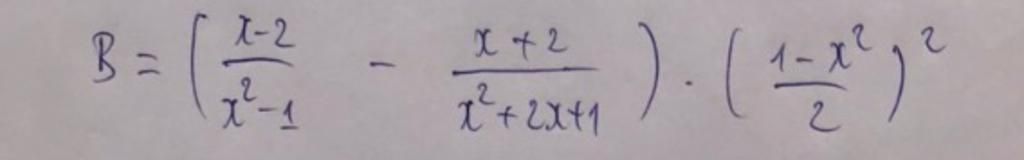 B = ( (x-2)/(x²-1) - (x+2)/(x²+2x+1) ) · ( (1-x²)/2 )²